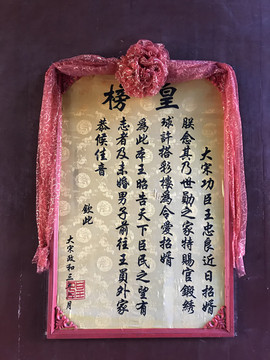 皇榜
大宋功臣王忠良近日招婿
朕念其乃世勋之家特赐官锻绣
球许搭彩楼为令爱招婿
为此本王昭告天下臣民之望有
志者及未婚男子前往王员外家
恭候佳音
钦此
大宋政和三年三月